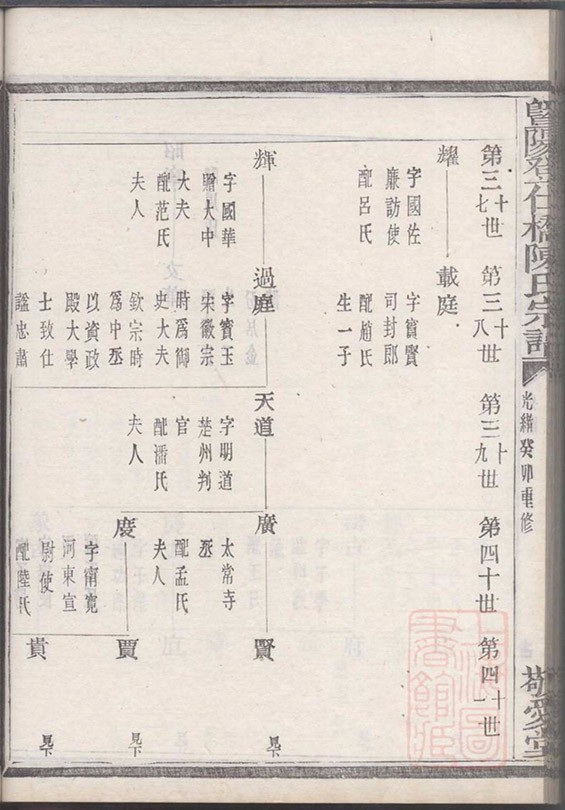 暨陽登仕橋陳氏宗譜
光緒癸卯重修
敬愛堂
第三十七世
第三十八世
第三十九世
第四十世
第四十一世
耀
字國佐
廉訪使
配呂氏
載庭
字寶賢
司封郎
配趙氏
生一子
輝
字國華
贈大中
大夫
配范氏
夫人
過庭
字賓王
宋徽宗
時爲御
史大夫
欽宗時
爲中丞
以資政
殿大學
士致仕
諡忠肅
天道
字明道
楚州判
官
配潘氏
夫人
廣
太常寺
丞
配孟氏
夫人
慶
字甯寬
河東宣
尉使
配陸氏
賢
見下
賈
見下
貴
見下
上海圖
書館藏